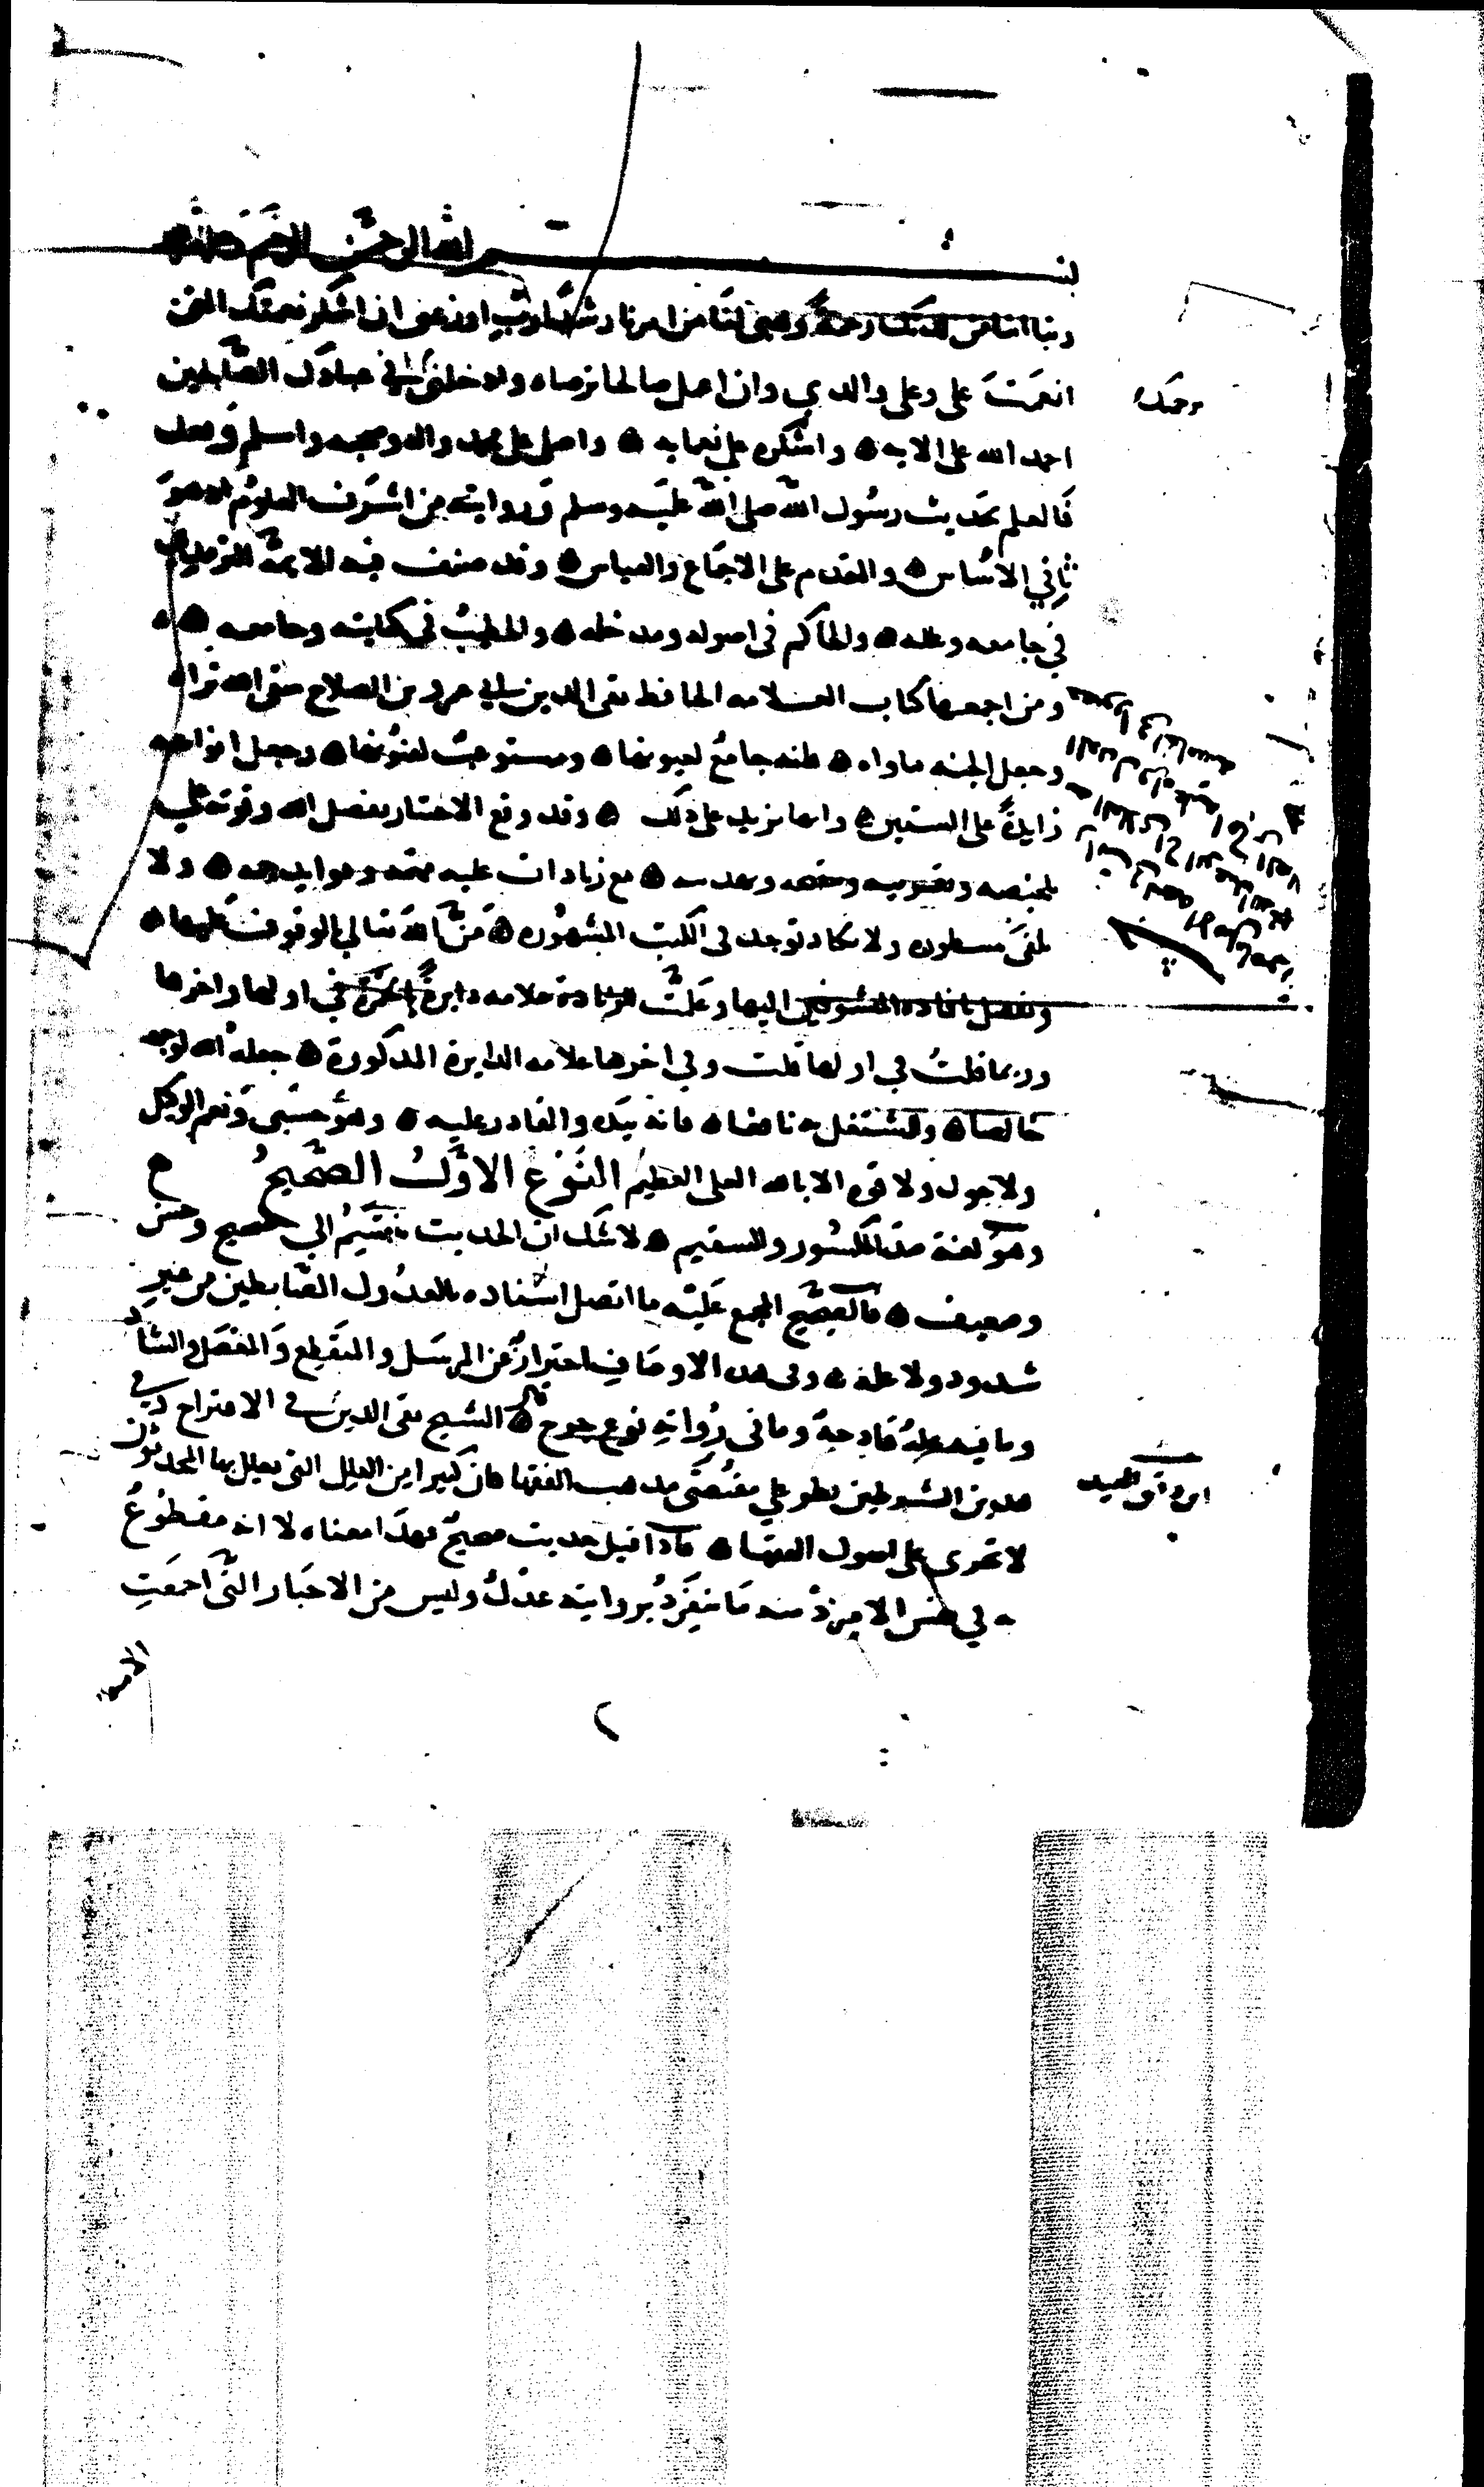 بسم الله الرحمن الرحيم
ربنا اتنا من لدنك رحمة وهيئ لنا من امرنا رشدا رب اوزعني ان اشكر نعمتك التي
انعمت علي وعلى والدي وان اعمل صالحا ترضاه وادخلني في عبادك الصالحين
برحمتك
احمد الله على الايه واشكره على نعمايه واصلي على محمد واله وصحبه واسلم وبعد
فالعلم بحديث رسول الله صلى الله عليه وسلم وروايته من اشرف العلوم اذ هو
ثاني الاساس والمقدم على الاجماع والقياس وقد صنف فيه الايمة الترمذي
في جامعه وعلله والحاكم في اصوله ومدخله والخطيب في كفايته وجامعه
ومن اجمعها كتاب العلامه الحافظ تقي الدين بن الصلاح سقى الله ثراه
وجعل الجنه ماواه فانه جامع لعيونها ومستوعب لفنونها وجعل انواعه
زايدة على الستين وانها تزيد على ذلك وقد وقع الاختيار بفضل الله وقوته على
تلخيصه وتقريبه وتنقيحه وتهذيبه مع زيادات عليه مهمة وفوايد جمه ولا
تلفى مسطوره ولا تكاد توجد في الكتب المشهوره من الله تعالى بالوقوف عليها
وتفضل بافاده المتشوفين اليها وعلمت للزيادة علامه دايرة الحمرة في اولها واخرها
وربما قلت في اولها قلت وفي اخرها علامه الدايرة المذكورة جعله الله لوجهه
خالصا وللمشتغل به نافعا فانه بيده والقادر عليه وهو حسبي ونعم الوكيل
ولا حول ولا قوه الا بالله العلي العظيم النوع الاول الصحيح
وهو لغة ضد المكسور والسقيم لا شك ان الحديث ينقسم الي صحيح وحسن
وضعيف فالصحيح المجمع عليه ما اتصل اسناده بالعدول الضابطين من غير
شذوذ ولا علة وفي هذه الاوصاف احتراز عن المرسل والمنقطع والمعضل والشاذ
وما فيه علة قادحة وما في رواته نوع جرح قال الشيخ تقي الدين في الاقتراح وفي
ابن دقيق العيد
هذين الشرطين نظر علي مقتضى مذهب الفقها فان كثيرا من العلل التي يعلل بها المحدثون
لا تجرى على اصول الفقها فاذا قيل حديث صحيح فهذا معناه لا انه مقطوع
به في نفس الامر اذ منه ما ينفرد بروايته عدل وليس من الاخبار التي اجمعت
الامة